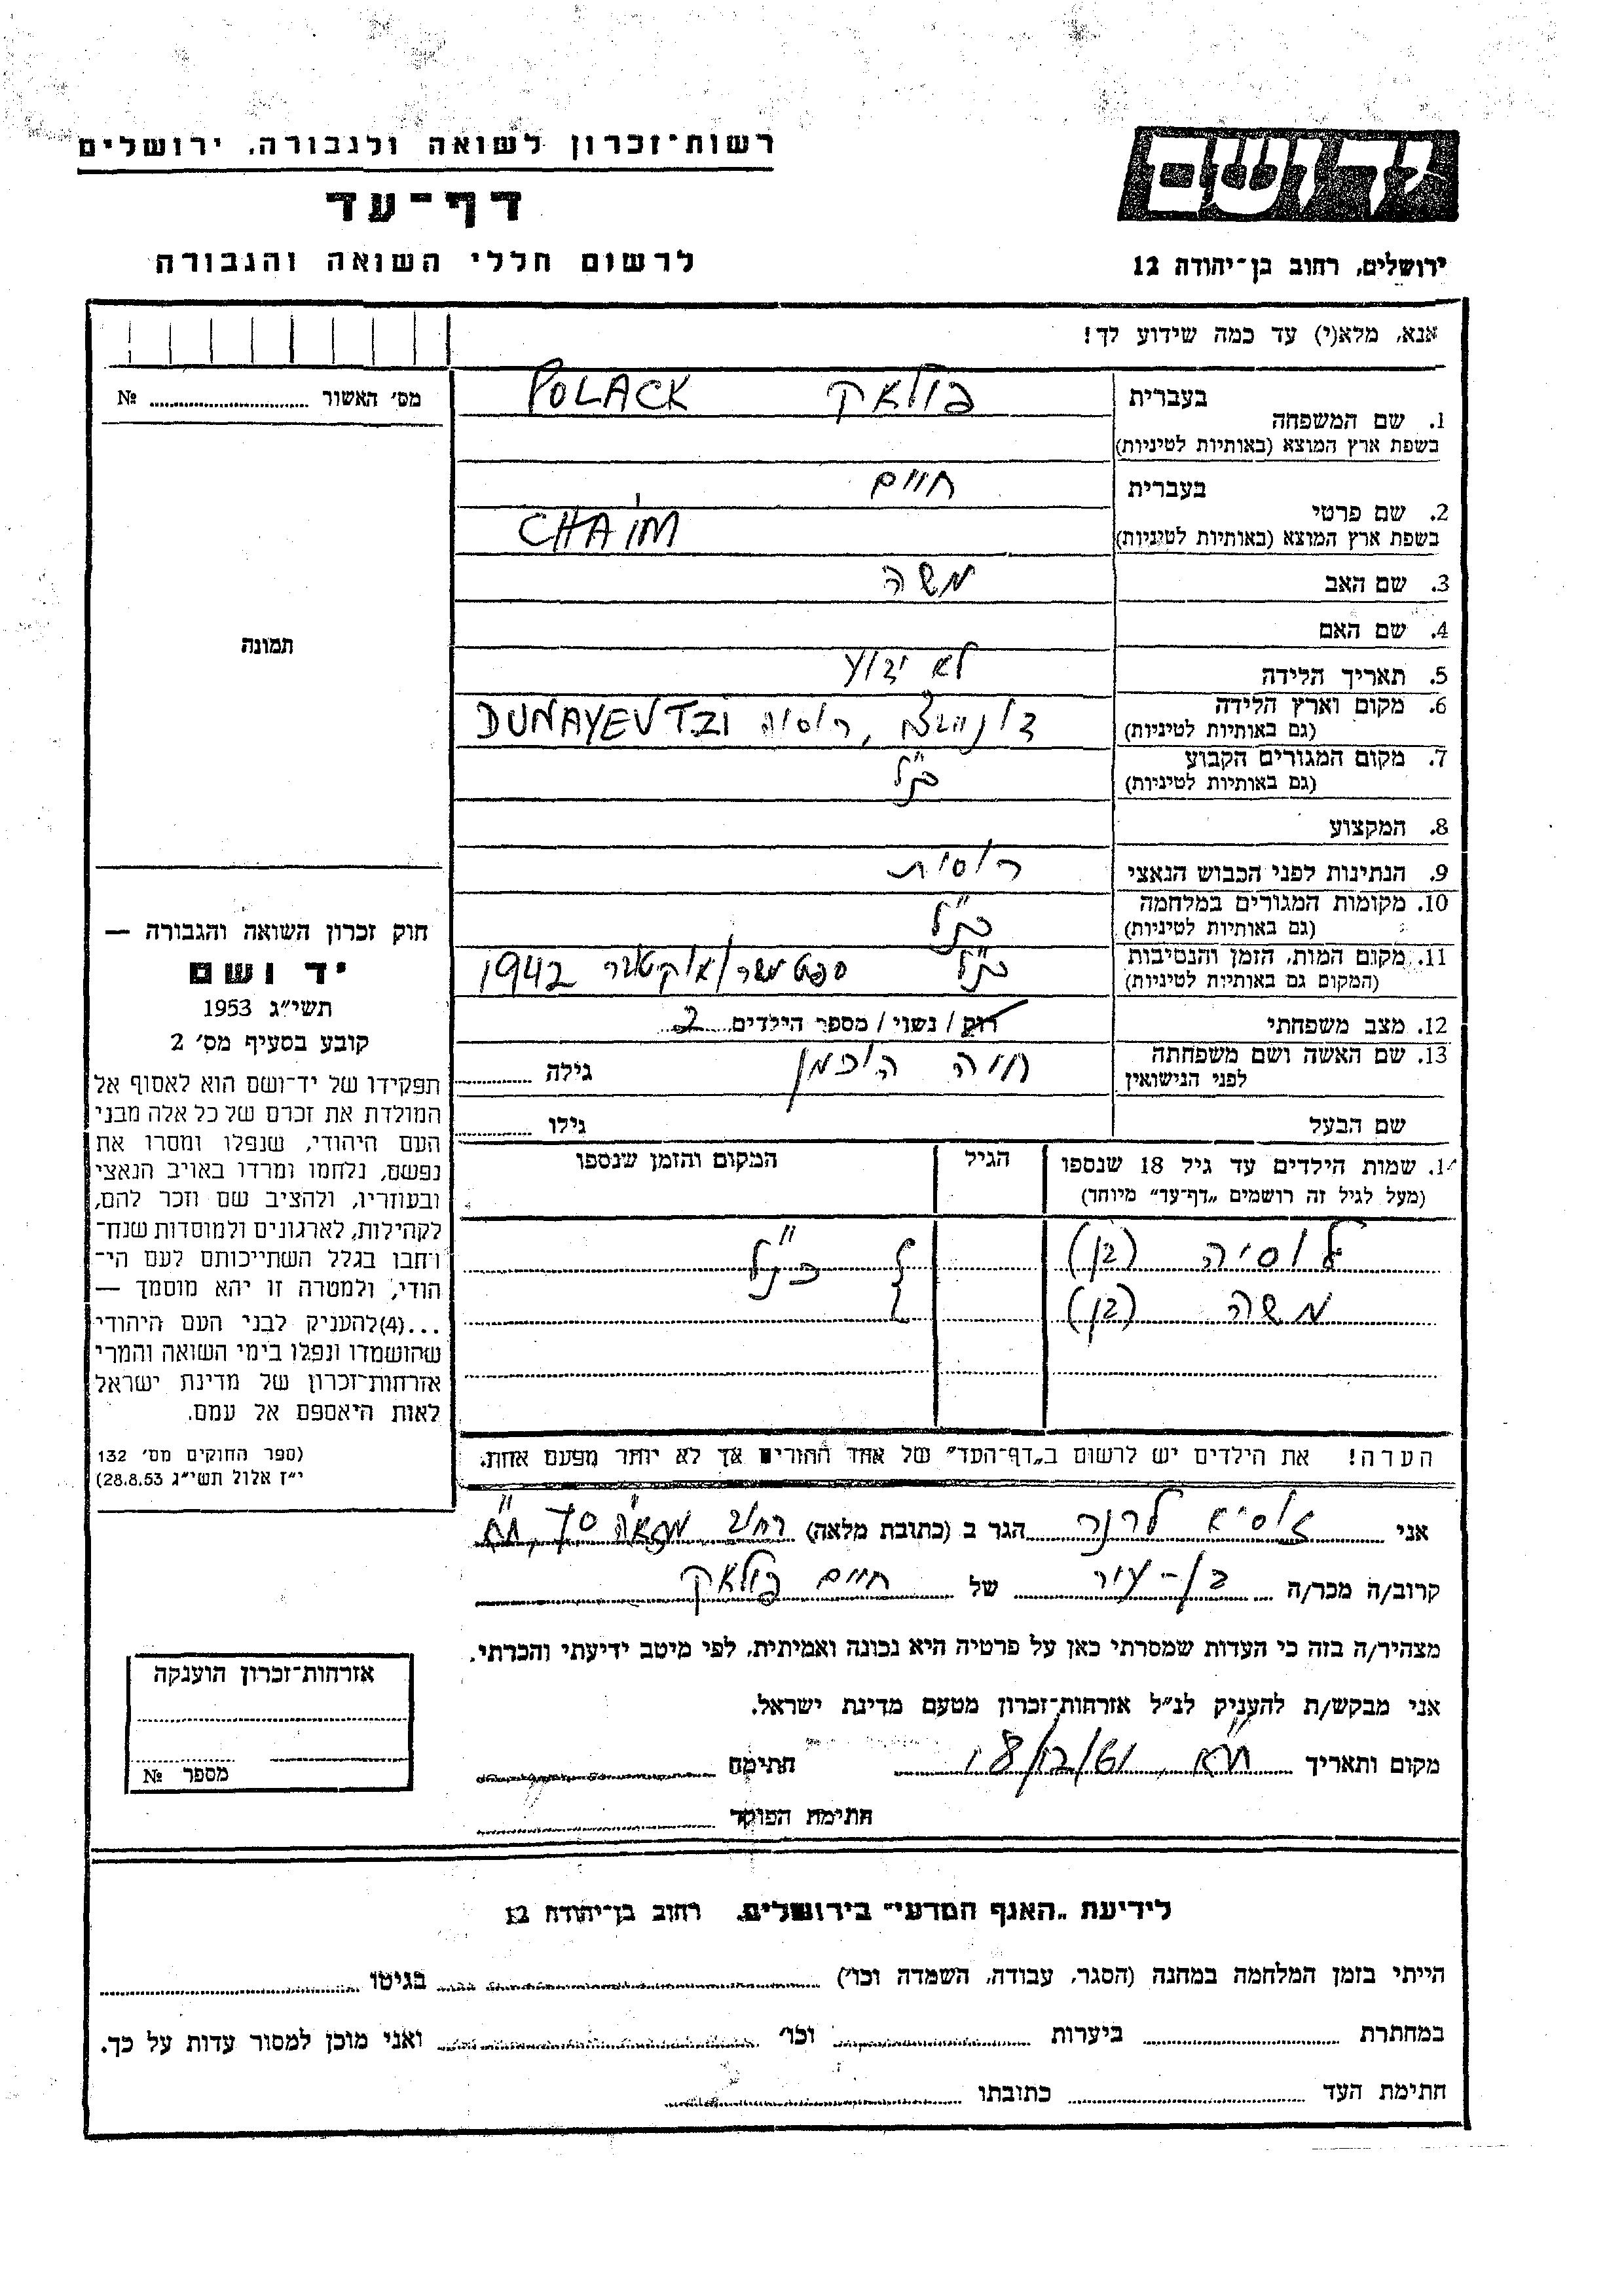 רשות־זכרון לשואה ולגבורה, ירושלים
יד ושם
דף־עד
לרשום חללי השואה והגבורה
ירושלים, רחוב בן־יהודה 12
אנא, מלא(י) עד כמה שידוע לך!
מס׳ האשור № 
בעברית פולאק POLACK
1. שם המשפחה
בשפת ארץ המוצא (באותיות לטיניות)
בעברית חיים
2. שם פרטי
בשפת ארץ המוצא (באותיות לטיניות) CHAÏM
3. שם האב משה
4. שם האם
5. תאריך הלידה לא ידוע
6. מקום וארץ הלידה
(גם באותיות לטיניות) רוסיה DUNAYEVTZI
7. מקום המגורים הקבוע
(גם באותיות לטיניות) כנ״ל
8. המקצוע
9. הנתינות לפני הכבוש הנאצי רוסית
10. מקומות המגורים במלחמה
(גם באותיות לטיניות) כנ״ל
11. מקום המות, הזמן והנסיבות
(המקום גם באותיות לטיניות) כנ״ל ספטמבר/אוקטובר 1942
12. מצב משפחתי רוק / נשוי / מספר הילדים 2
13. שם האשה ושם משפחתה
לפני הנישואין חיה הוכמן גילה
שם הבעל גילו
14. שמות הילדים עד גיל 18 שנספו
(מעל לגיל זה רושמים „דף־עד״ מיוחד)
הגיל
המקום והזמן שנספו
לוסיה (בן) כנ״ל
משה (בן)
הערה! את הילדים יש לרשום ב„דף־העד״ של אחד ההורים אך לא יותר מפעם אחת.
תמונה
חוק זכרון השואה והגבורה —
יד ושם
תשי״ג 1953
קובע בסעיף מס׳ 2
תפקידו של יד־ושם הוא לאסוף אל
המולדת את זכרם של כל אלה מבני
העם היהודי, שנפלו ומסרו את
נפשם, נלחמו ומרדו באויב הנאצי
ובעוזריו, ולהציב שם וזכר להם,
לקהילות, לארגונים ולמוסדות שנח־
רחבו בגלל השתייכותם לעם הי־
הודי, ולמטרה זו יהא מוסמך —
...(4)להעניק לבני העם היהודי
שהושמדו ונפלו בימי השואה והמרי
אזרחות־זכרון של מדינת ישראל
לאות היאספם אל עמם.
(ספר החוקים מס׳ 132
י״ז אלול תשי״ג 28.8.53)
אני לרנר הגר ב (כתובת מלאה) רחוב ת״א
קרוב/ה מכר/ה בן-עיר של חיים פולאק
מצהיר/ה בזה כי העדות שמסרתי כאן על פרטיה היא נכונה ואמיתית, לפי מיטב ידיעתי והכרתי.
אני מבקש/ת להעניק לנ״ל אזרחות־זכרון מטעם מדינת ישראל.
מקום ותאריך ת״א, 18/12/61 חתימת
חתימת הפוקד
אזרחות־זכרון הוענקה
מספר №
לידיעת „האגף המדעי״ בירושלים, רחוב בן־יהודה 12
הייתי בזמן המלחמה במחנה (הסגר, עבודה, השמדה וכו׳) בגיטו
במחתרת ביערות וכו׳ ואני מוכן למסור עדות על כך.
חתימת העד כתובתו